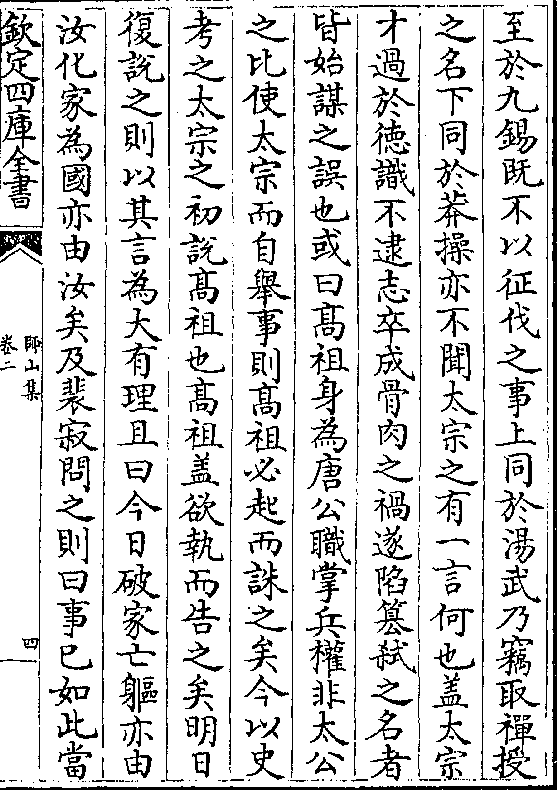 至於九錫既不以征伐之事上同於湯武乃竊取禪授
之名下同於莽操亦不聞太宗之有一言何也盖太宗
才過於徳識不逮志卒成骨肉之禍遂䧟簒弑之名者
皆始謀之誤也或曰髙祖身為唐公職掌兵權非太公
之比使太宗而自舉事則髙祖必起而誅之矣今以史
考之太宗之初說髙祖也髙祖盖欲執而告之矣明日
復說之則以其言為大有理且曰今日破家亡軀亦由
汝化家為國亦由汝矣及裴寂問之則曰事已如此當
欽定四庫全書
師山集
卷二
四